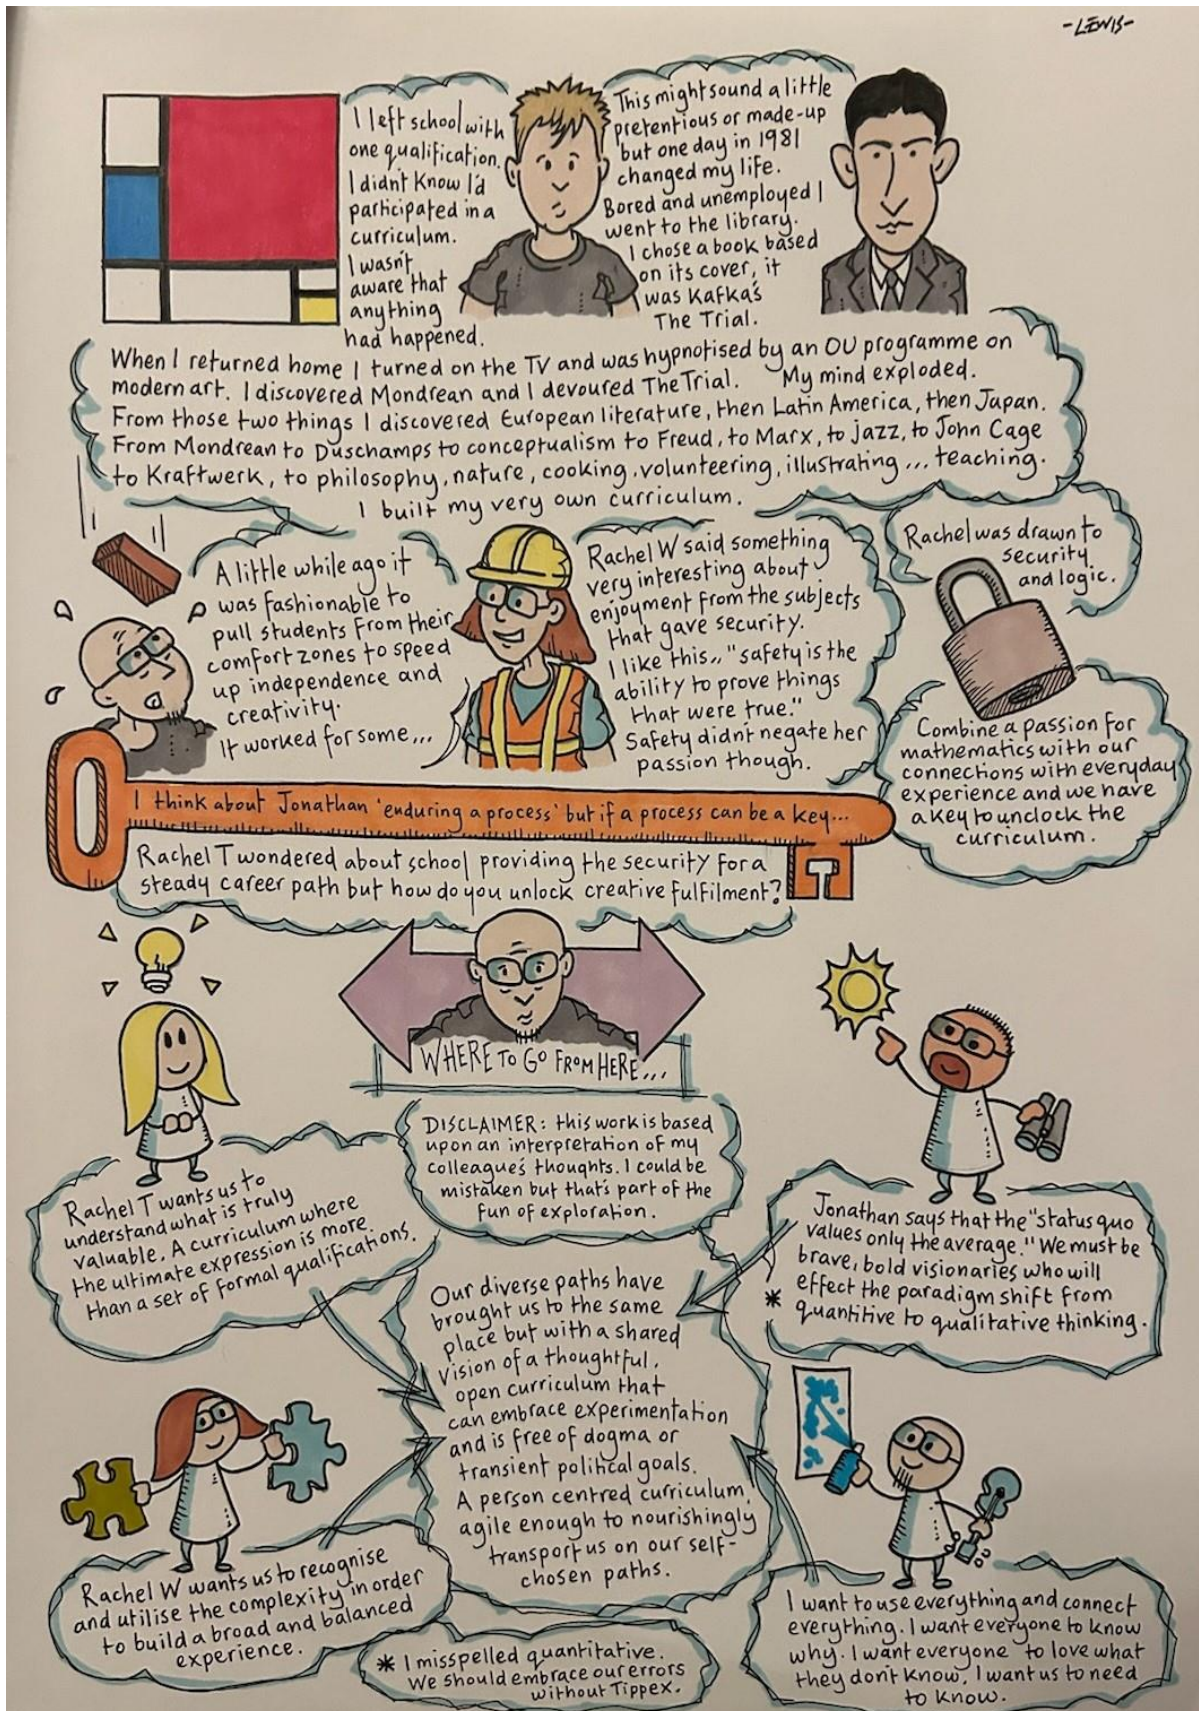 -LEWIS-
I left school with
one qualification.
I didn't know I'd
participated in a
curriculum.
I wasn't
aware that
anything
had happened.
This might sound a little
pretentious or made-up
but one day in 1981
changed my life.
Bored and unemployed I
went to the library.
I chose a book based
on its cover, it
was Kafka's
The Trial.
When I returned home I turned on the TV and was hypnotised by an OU programme on
modern art. I discovered Mondrean and I devoured The Trial. My mind exploded.
From those two things I discovered European literature, then Latin America, then Japan.
From Mondrean to Duschamps to conceptualism to Freud, to Marx, to jazz, to John Cage
to Kraftwerk, to philosophy, nature, cooking, volunteering, illustrating... teaching.
I built my very own curriculum.
A little while ago it
was fashionable to
pull students from their
comfort zones to speed
up independence and
creativity.
It worked for some...
Rachel W said something
very interesting about
enjoyment from the subjects
that gave security.
I like this.. "safety is the
ability to prove things
that were true."
Safety didn't negate her
passion though.
Rachel was drawn to
security
and logic.
Combine a passion for
mathematics with our
connections with everyday
experience and we have
a key to unclock the
curriculum.
I think about Jonathan 'enduring a process' but if a process can be a key...
Rachel T wondered about school providing the security for a
steady career path but how do you unlock creative fulfilment?
WHERE TO GO FROM HERE...
DISCLAIMER: this work is based
upon an interpretation of my
colleague's thoughts. I could be
mistaken but that's part of the
fun of exploration.
Rachel T wants us to
understand what is truly
valuable. A curriculum where
the ultimate expression is more
than a set of formal qualifications.
Jonathan says that the "status quo
values only the average." We must be
brave, bold visionaries who will
effect the paradigm shift from
* quantitive to qualitative thinking.
Our diverse paths have
brought us to the same
place but with a shared
vision of a thoughtful,
open curriculum that
can embrace experimentation
and is free of dogma or
transient political goals.
A person centred curriculum,
agile enough to nourishingly
transport us on our self-
chosen paths.
Rachel W wants us to recognise
and utilise the complexity in order
to build a broad and balanced
experience.
* I misspelled quantitative.
We should embrace our errors
without Tippex.
I want to use everything and connect
everything. I want everyone to know
why. I want everyone to love what
they don't know. I want us to need
to know.